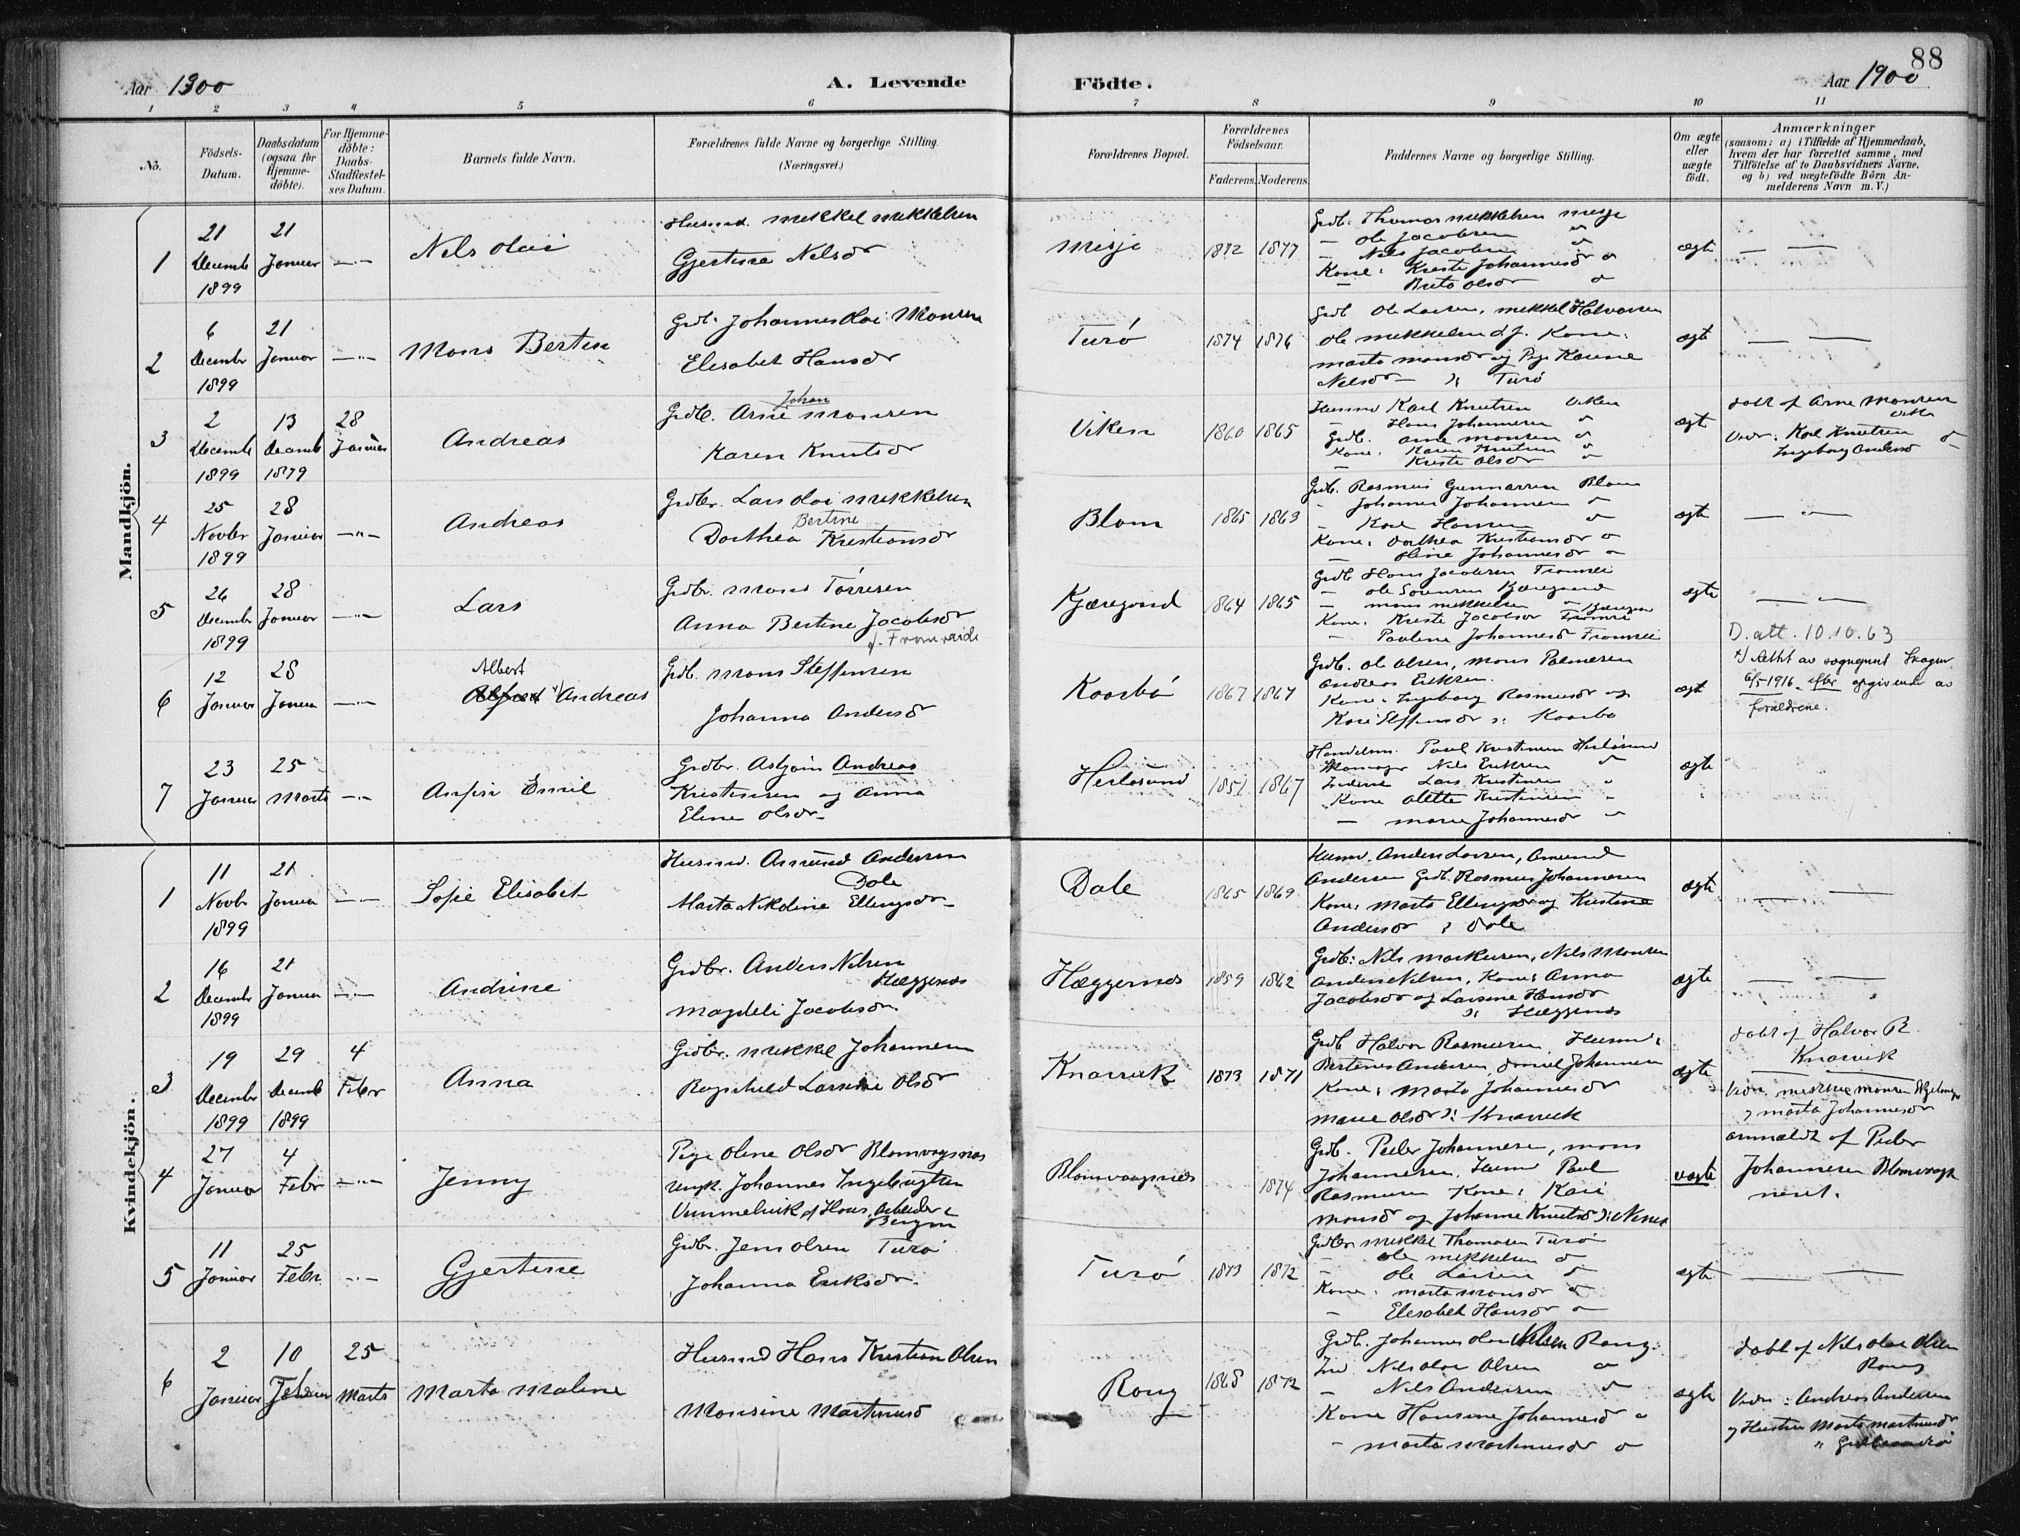 88
Aar 1900
A. Levende
Födte.
Aar 1900
1 2 3 4 5 6 7 8 9 10 11
Nö.
Födsels-
Datum.
Daabsdatum
(ogsaa for
Hjemme-
döbte).
For Hjemme-
döbte:
Daabs-
Stadfæstel-
ses Datum.
Barnets fulde Navn.
Forældrenes fulde Navne og borgerlige Stilling.
(Næringsvei.)
Forældrenes Bopæl.
Forældrenes
Födselsaar.
Faderens. Moderens.
Faddernes Navne og borgerlige Stilling.
Om ægte
eller
uægte
födt.
Anmærkninger
(saasom: a) i Tilfælde af Hjemmedaab,
hvem der har forrettet samme, med
Tilföielse af to Daabsvidners Navne,
og b) ved uægtefödte Börn An-
melderens Navn m. V.)
Mandkjön.
1
21 Decemb 1899
21 Januar
Nils Olai
Husmd. Mikkel Mikkelsen
Gjertine Nelsdr
Misje
1872 1877
Grdb. Thomas Mikkelsen Misje
– Ole Jacobsen
– Nils Jacobsen
Kone: Kreste Johannesdr
– Brita Olsdr
ægte
2
6 Decembr 1899
21 Januar
Mons Bertin
Grdb. Johannes Olai Monsen
Elisabet Hansdr
Turö
1874 1876
Grdb Ole Larsen, Mikkel Halvorsen
Ole Mikkelsen d.j. Kone:
Marta Monsdr og Pige Karine
Nilsdr – Turö
ægte
3
2 Decemb 1899
13 Decemb 1899
28 Januar
Andreas
Grdb. Arne Johan Monsen
Karen Knutsdr
Viken
1860 1865
Husmd Karl Knutsen Viken
– Hans Johannesen
Grdb. Arne Monsen
Kone: Karen Knutsen
– Kreste Olsdr
ægte
döbt af Arne Monsen
Viken
Vidn: Karl Knutsen
Ingeborg Andersd
4
25 Novbr 1899
28 Januar
Andreas
Grdbr. Lars Olai Mikkelsen
Dorthea Bertine Kristiansdr
Blom
1865 1863
Grdb. Rasmus Gunnarsen Blom
– Johannes Johannesen
– Karl Hansen
Kone: Dorthea Kristiansdr
– Oline Johannesdr
ægte
5
26 Decemb 1899
28 Januar
Lars
Grdbr. Mons Törresen
Anna Bertine Jacobsdr
Kjæregaard
1864 1865
Grdb Hans Jacobsen
– Ole Sörensen Kjæregaard
– Mons Mikkelsen
Kone: Kreste Jacobsdr
– Pauline Johannesd
ægte
D.att. 10.10.63
6
12 Januar
28 Janua
Albert
Alfred Andreas
Grdb. Mons Steffensen
Johanna Andersdr
Kaarbö
1867 1867
Grdb. Ole Olsen, Mons Palmesen
Andreas Eriksen.
Kone: Ingeborg Rasmusdr og
Kari Steffensdr Kaarbö
ægte
x) Rettet av sogneprest Skagen
6/5-1916 efter opgivende av
forældrene.
7
23 Januar
25 Marts
Emil
Grdbr. Asbjörn Andreas
Kristensen og Anna
Eline Olsdr
Herlösund
1851 1867
Handelsm. Paul Kristensen Herlösund
Skomager Nils Eriksen
Inderst Lars Kristensen
Kone Olette Kristensen
– Marie Johannesdr
ægte
Kvindekjön.
1
11 Novbr 1899
21 Janua
Sofie Elisabet
Husmd. Amund Andersen
Dale
Marta Nikoline Ellingsdr
Dale
1865 1869
Husm. Anders Larsen, Amund
Andersen Grdb. Rasmus Johannesen
Kone: Marta Ellingsdr og Kristine
Andersdr Dale
ægte
2
16 Decemb 1899
21 Janua
Andrine
Grdbr. Anders Nilsen
Hæggernæs
Magdeli Jacobsdr
Hæggernæs
1859 1862
Grdb: Nils Markusen, Nils Monsen
Anders Nilsen, Kone: Anna
Jacobsdr og Larsine Hansdr
Hæggernæs
ægte
3
19 December 1899
29 Decemb 1899
4 Febr
Anna
Grdbr. Mikkel Johannesen
Ragnhild Larsine Olsdr
Knarvik
1873 1871
Grdb Halvor Rasmusen Husmd:
Bertines Andersen, Daniel Johannesen
Kone: Marta Johannesdr
Marie Olsdr Knarvik
ægte
döbt af Halvor R.
Knarvik
Vidn. Mikkel Monsen
og Marta Johannesdr
4
27 Januar
4 Febr
Jenny
Pige Oline Olsdr Blomvaagnæs
Ungk. Johannes Ingebrigtsen
Vimmelvik af Hous, Arbeider i
Bergen
Blomvaagnes
1874
Grdb. Peder Johannesen, Mons
Johannesen, Husmd Paul
Rasmusen Kone: Kari
Monsdr og Johanne Knutsd
uægte
anmeldt af Peder
Johannesen Blomvaag-
neset.
5
11 Januar
25 Febr
Gjertine
Grdbr. Jens Olsen Turö
Johanna Eriksdr.
Turö
1873 1872
Grdbr Mikkel Thomasen Turö
– Ole Mikkelsen
– Ole Larsen
Kone: Marta Monsdr
– Elisabet Hansdr
ægte
6
2 Januar
10 Februar
25 Marts
Marta Maline
Husmd Hans Kristian Olsen
Monsine Martinusd
Rong
1868 1872
Grdb. Johannes Olai Nilsen Rong
Ind Nils Olai Olsen
– Nils Andersen
Kone Hansine Johannesd
– Marta Martinusdr
ægte
döbt af Nils Olai Olsen
Rong
Vidn: Andreas Andersen
og Hustru Marta Martinusdr